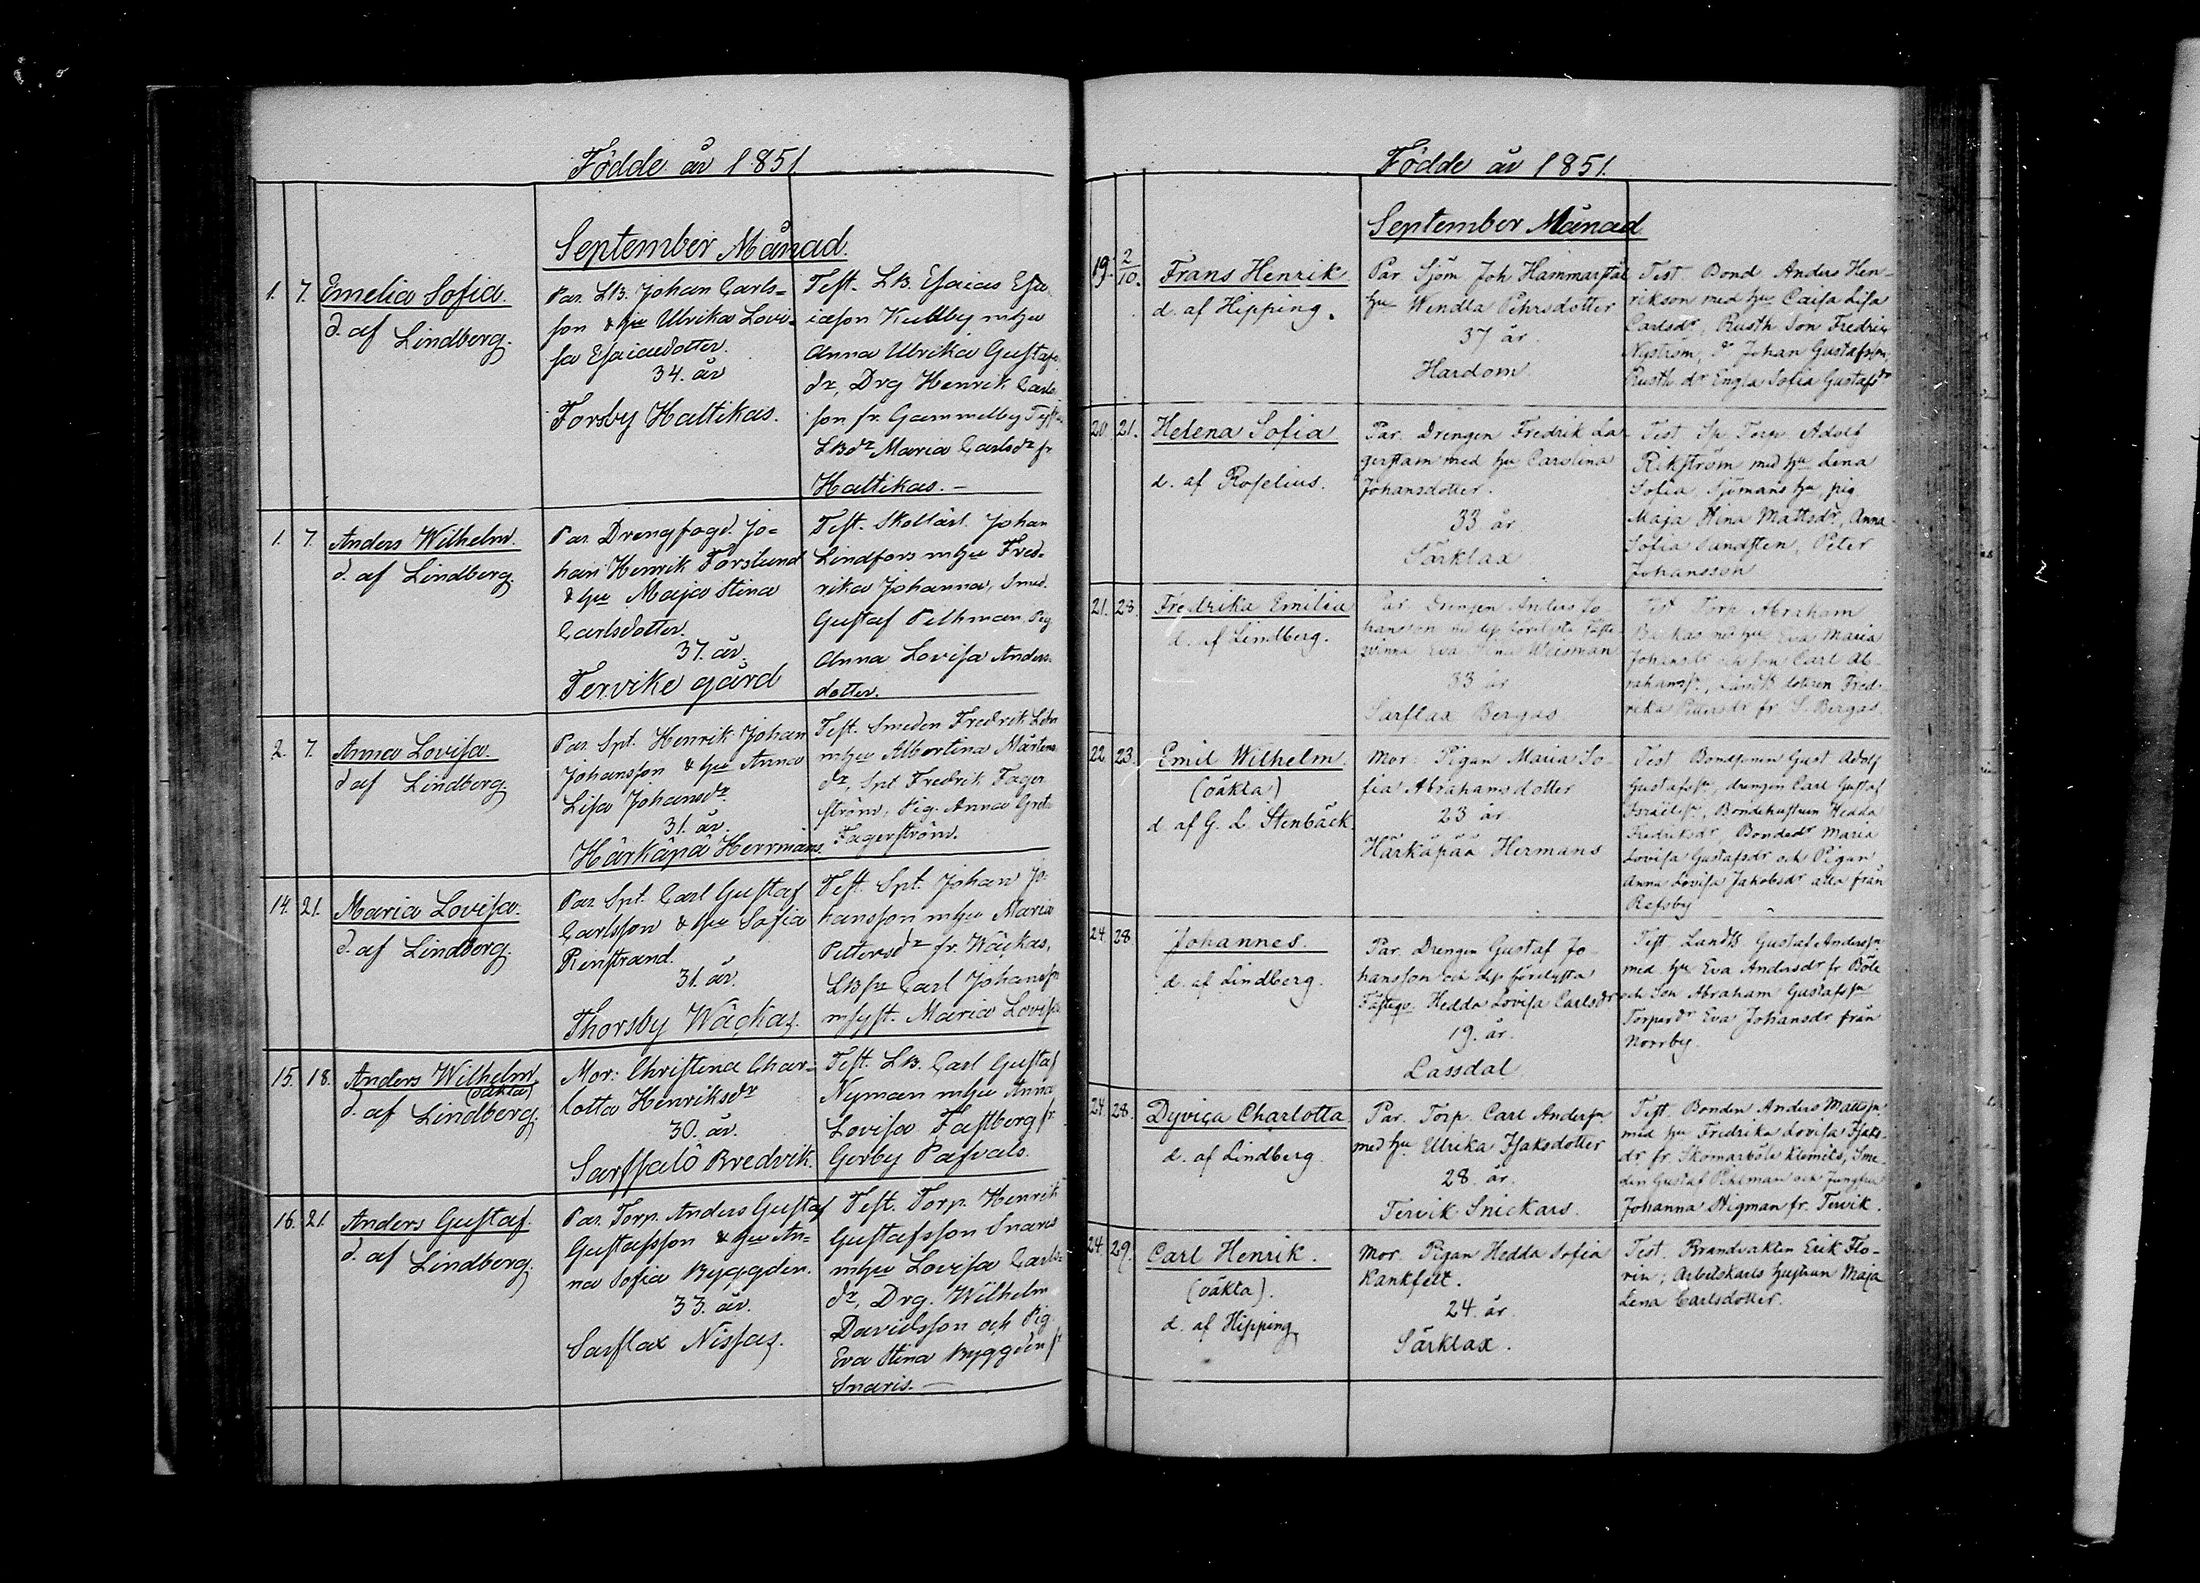 Födde år 1851
September Månad.
1. 7. Emelia Sofia.
d. af Lindberg.
Par. LB. Johan Carls-
son & hu Ulrika Lovi-
sa Esaiaedotter.
34. år
Forsby Hattikas.
Test. LB. Esaias Esa
iason Kullby mhu
Anna Ulrika Gustafs
dr, Drg Henrik Carls
son fr. Gammelby
LBdr Maria Carlsdr fr
Hattikas. -
1. 7. Anders Wilhelm.
d. af Lindberg.
Par. Drengfogd. Jo-
han Henrik Forslund
& hu Maja Stina
Carlsdotter.
37. år.
Tervike gård
Test. Skollär. Johan
Lindfors mhu Fred-
rika Johanna, Smed.
Gustaf Pethman, Pig
Anna Lovisa Anders-
dotter.
2. 7. Anna Lovisa.
d af Lindberg.
Par. Spt. Henrik Johan
Johansson & hu Anna
Lisa Johansdr.
31. år.
Härkäpä Herrmans.
Test. Smeden Fredrik
mhu Albertina Mårtens
dr, Spt Fredrik Fager
ström, Pig. Anna Greta
Fagerström.
14. 21. Maria Lovisa.
d. af Lindberg.
Par. Spt. Carl Gustaf
Carlsson & hu Sofia
Renstrand.
31. år.
Thorsby Wäckas.
Test. Spt. Johan Jo-
hansson mhu Maria
Pettersdr fr. Wäckas,
LBsn Carl Johanss
m syst. Maria Lovisa
15. 18. Anders Wilhelm.
(oäkta)
d. af Lindberg.
Mor: Christina Char-
lotta Henriksdr
30. år.
Sarssalö Bredvik.
Test. LB. Carl Gustaf
Nyman mhu Anna
Lovisa Fastberg fr
Gerby Pasvals.
16. 21. Anders Gustaf.
d. af Lindberg.
Par. Torp. Anders Gustaf
Gustafsson & hu An-
na Sofia Byggdin.
33. år.
Sarflax Nissas.
Test. Torp. Henrik
Gustafsson Snaris
mhu Lovisa Carls-
dr, Drg. Wilhelm
Davidsson och Pig.
Eva Stina Byggdin fr
Snaris. -
Födde år 1851.
September Månad
19. 2/10. Frans Henrik
d. af Hipping.
Par. Sjöm Joh Hammarstål
hu Wendla Pehrsdotter
37 år.
Hardom
Test Bond Anders Hen-
rikson med hu Caisa Lisa
Carlsdr, Rusth Son Fredrik
Nyström, dr Johan Gustafsson,
Rusth dr Engla Sofia Gustafsdr
20 21. Helena Sofia
d. af Roselius.
Par. Drengen Fredrik La-
gerstam med hu Carolina
Johansdotter.
33 år.
Särklax
Test Sp Torp Adolf
Rekström med hu Lena
Sofia, Sjömans hu, pig
Maja Stina Mattsdr, Anna
Sofia Sundsten, Peter
Johansson
21. 28. Fredrika Emilia
d. af Lindberg.
Par. Drengen Anders Jo
hansson och dess förelysta Fäste-
qvinna Eva Stina Weisman
33 år
Sarflax Bergas
Test Torp Abraham
med hu Eva Maria
Johansdr och son Carl Ab-
rahamss, Landb dotteren Fred-
rika Pettersdr fr S. Bergas.
22. 23. Emil Wilhelm.
(oäkta)
d. af G. L. Stenbäck
Mor: Pigan Maria So-
fia Abrahamsdotter
23 år
Härkäpää Hermans
Test Bondsonen Gust Adolf
Gustafssn, drengen Carl Gustaf
Israelss, Bondehustrun Hedda
Fredriksdr, Bondedr Maria
Lovisa Gustafsdr och Pigan
Anna Lovisa Jakobsdr alla från
Refsby
24. 28. Johannes.
d. af Lindberg.
Par. Drengen Gustaf Jo-
hansson och dess förelysta
Fästeqv. Hedda Lovisa Carlsdr
19. år.
Lassdal
Test Landb Gustaf Anderssn.
med hu Eva Andersdr fr Böle
och Son Abraham Gustafssn
Torpardr Eva Johansdr från
Norrby.
24. 28. Dyviga Charlotta
d. af Lindberg.
Par. Torp. Carl Anderssn
med hu Ulrika Isaksdotter
28. år.
Tervik Snickars.
Test. Bonden Anders Mattsson,
med hu Fredrika Lovisa Isaks-
dr fr. Skomarböle Klemets, Sme-
den Gustaf Pehlman och Jungfrun
Johanna Stigman fr. Tervik.
24. 29. Carl Henrik.
(oäkta).
d. af Hipping
Mor. Pigan Hedda Sofia
Kankfelt.
24. år.
Särklax.
Test. Brandvakten Erik Flo-
rin; Arbetskarls hustrun Maja
Lena Carlsdotter.